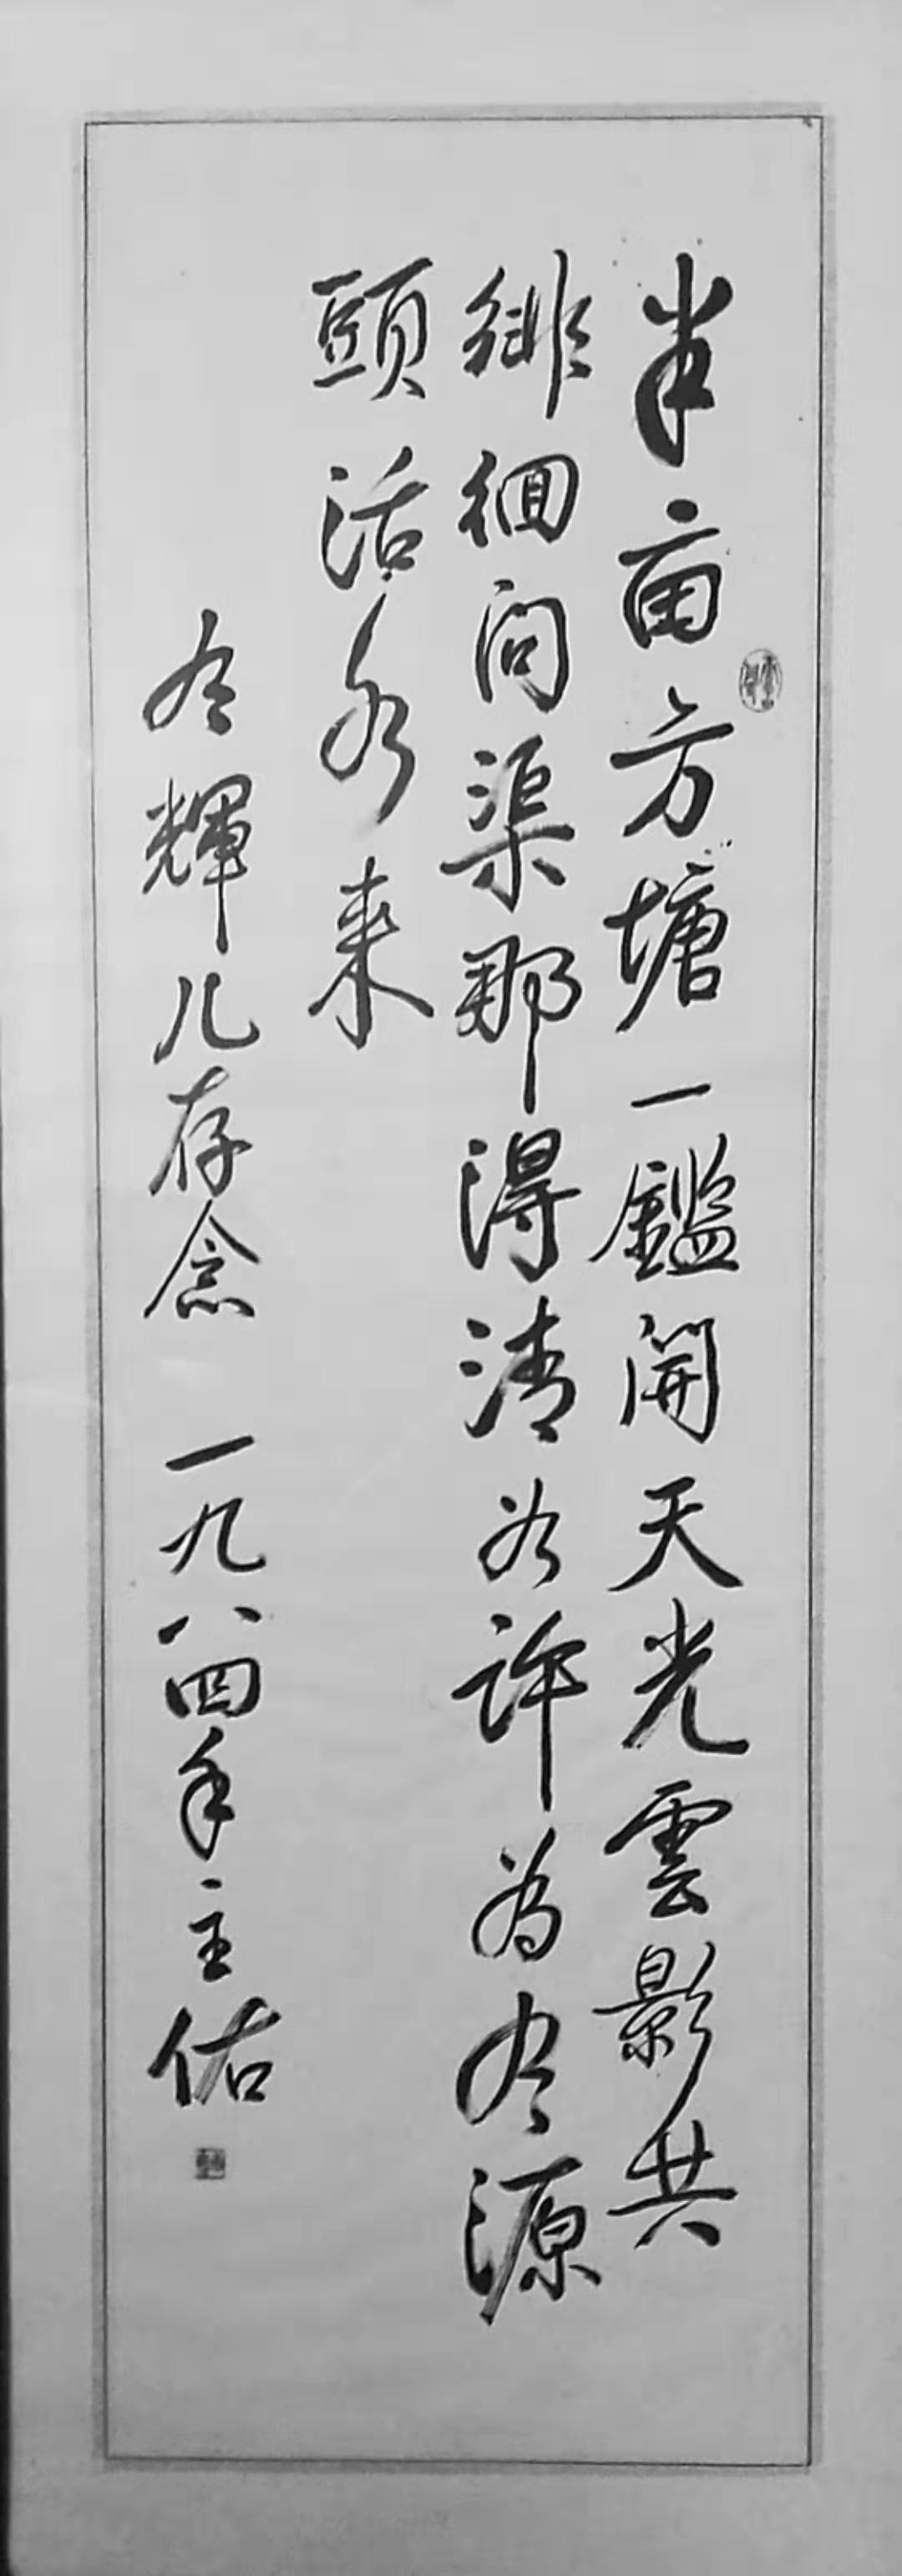 半亩方塘一鑑開天光雲影共
徘徊问渠那得清如許為有源
頭活水来
有輝儿存念 一九八四年主佑